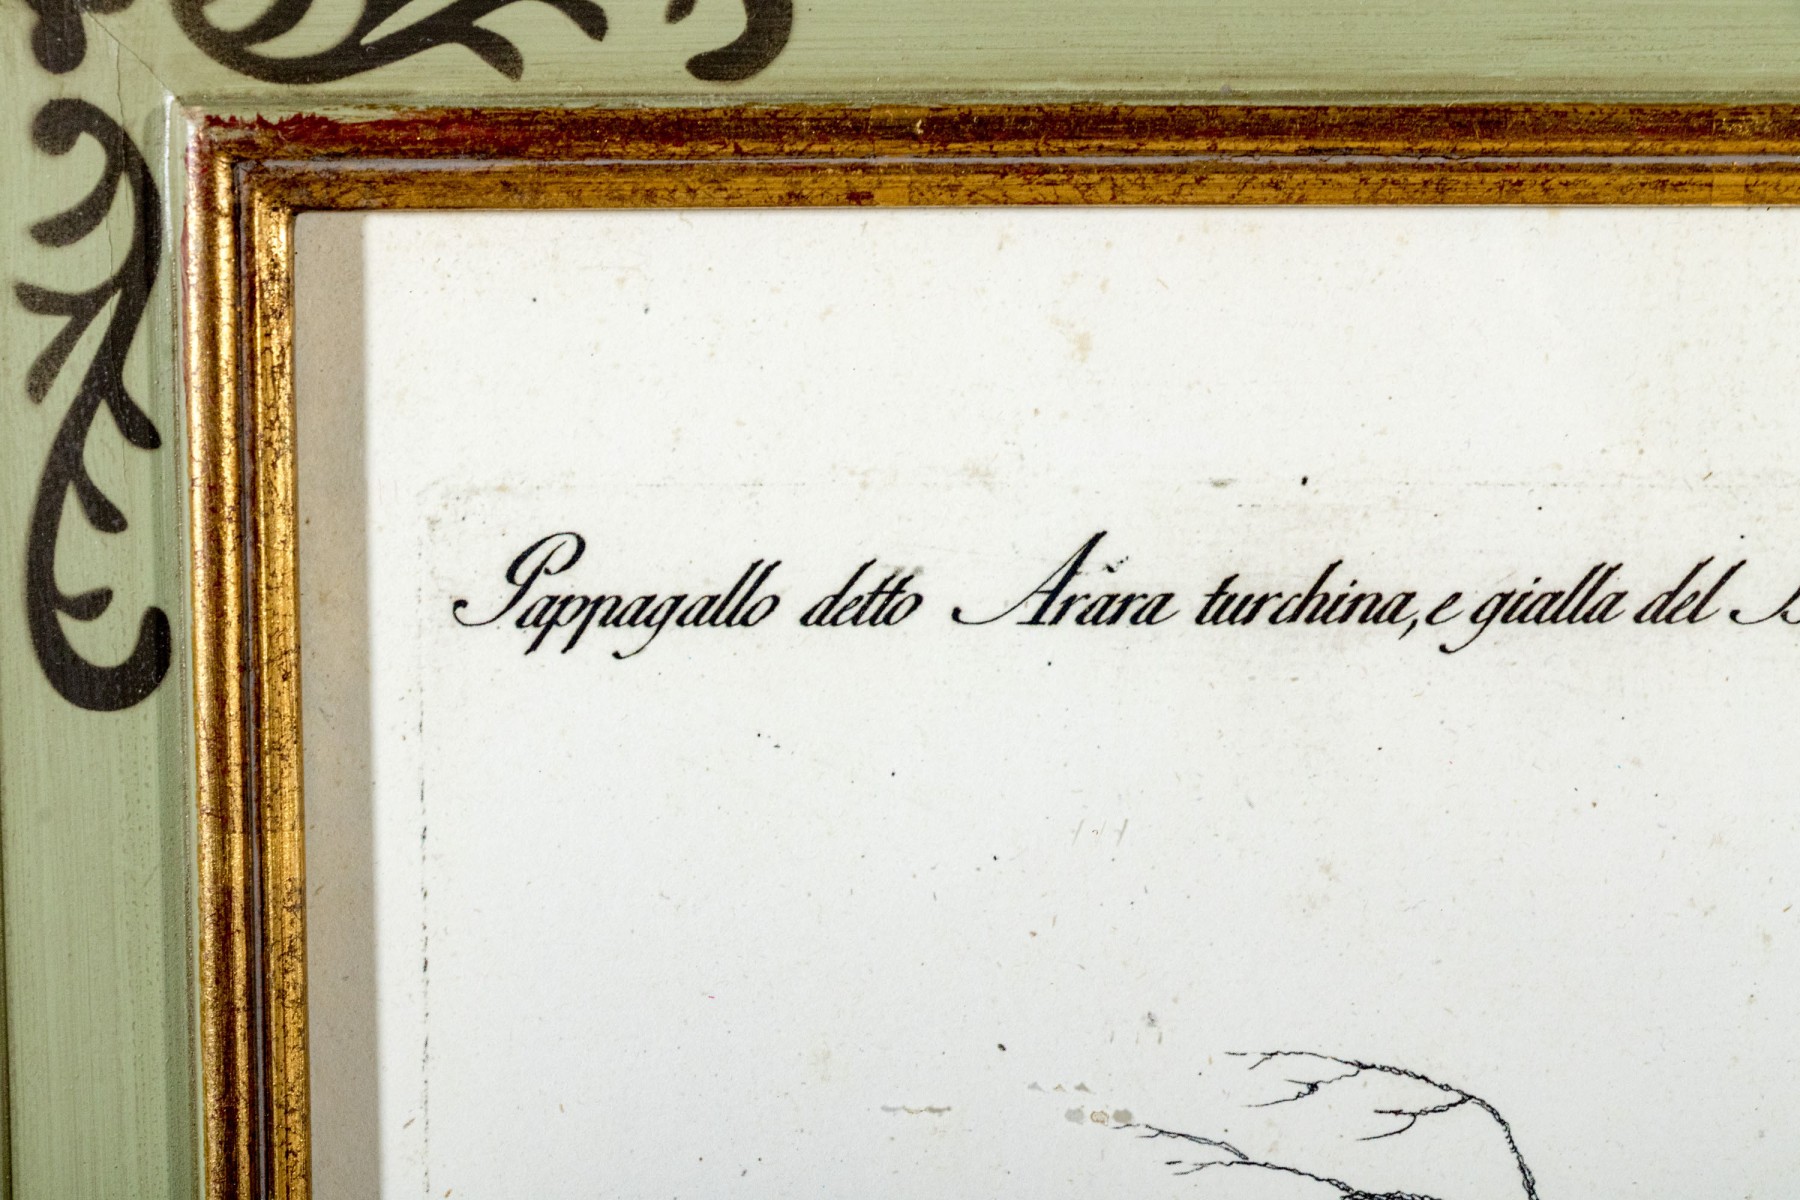 Pappagallo detto Arara turchina, e gialla del